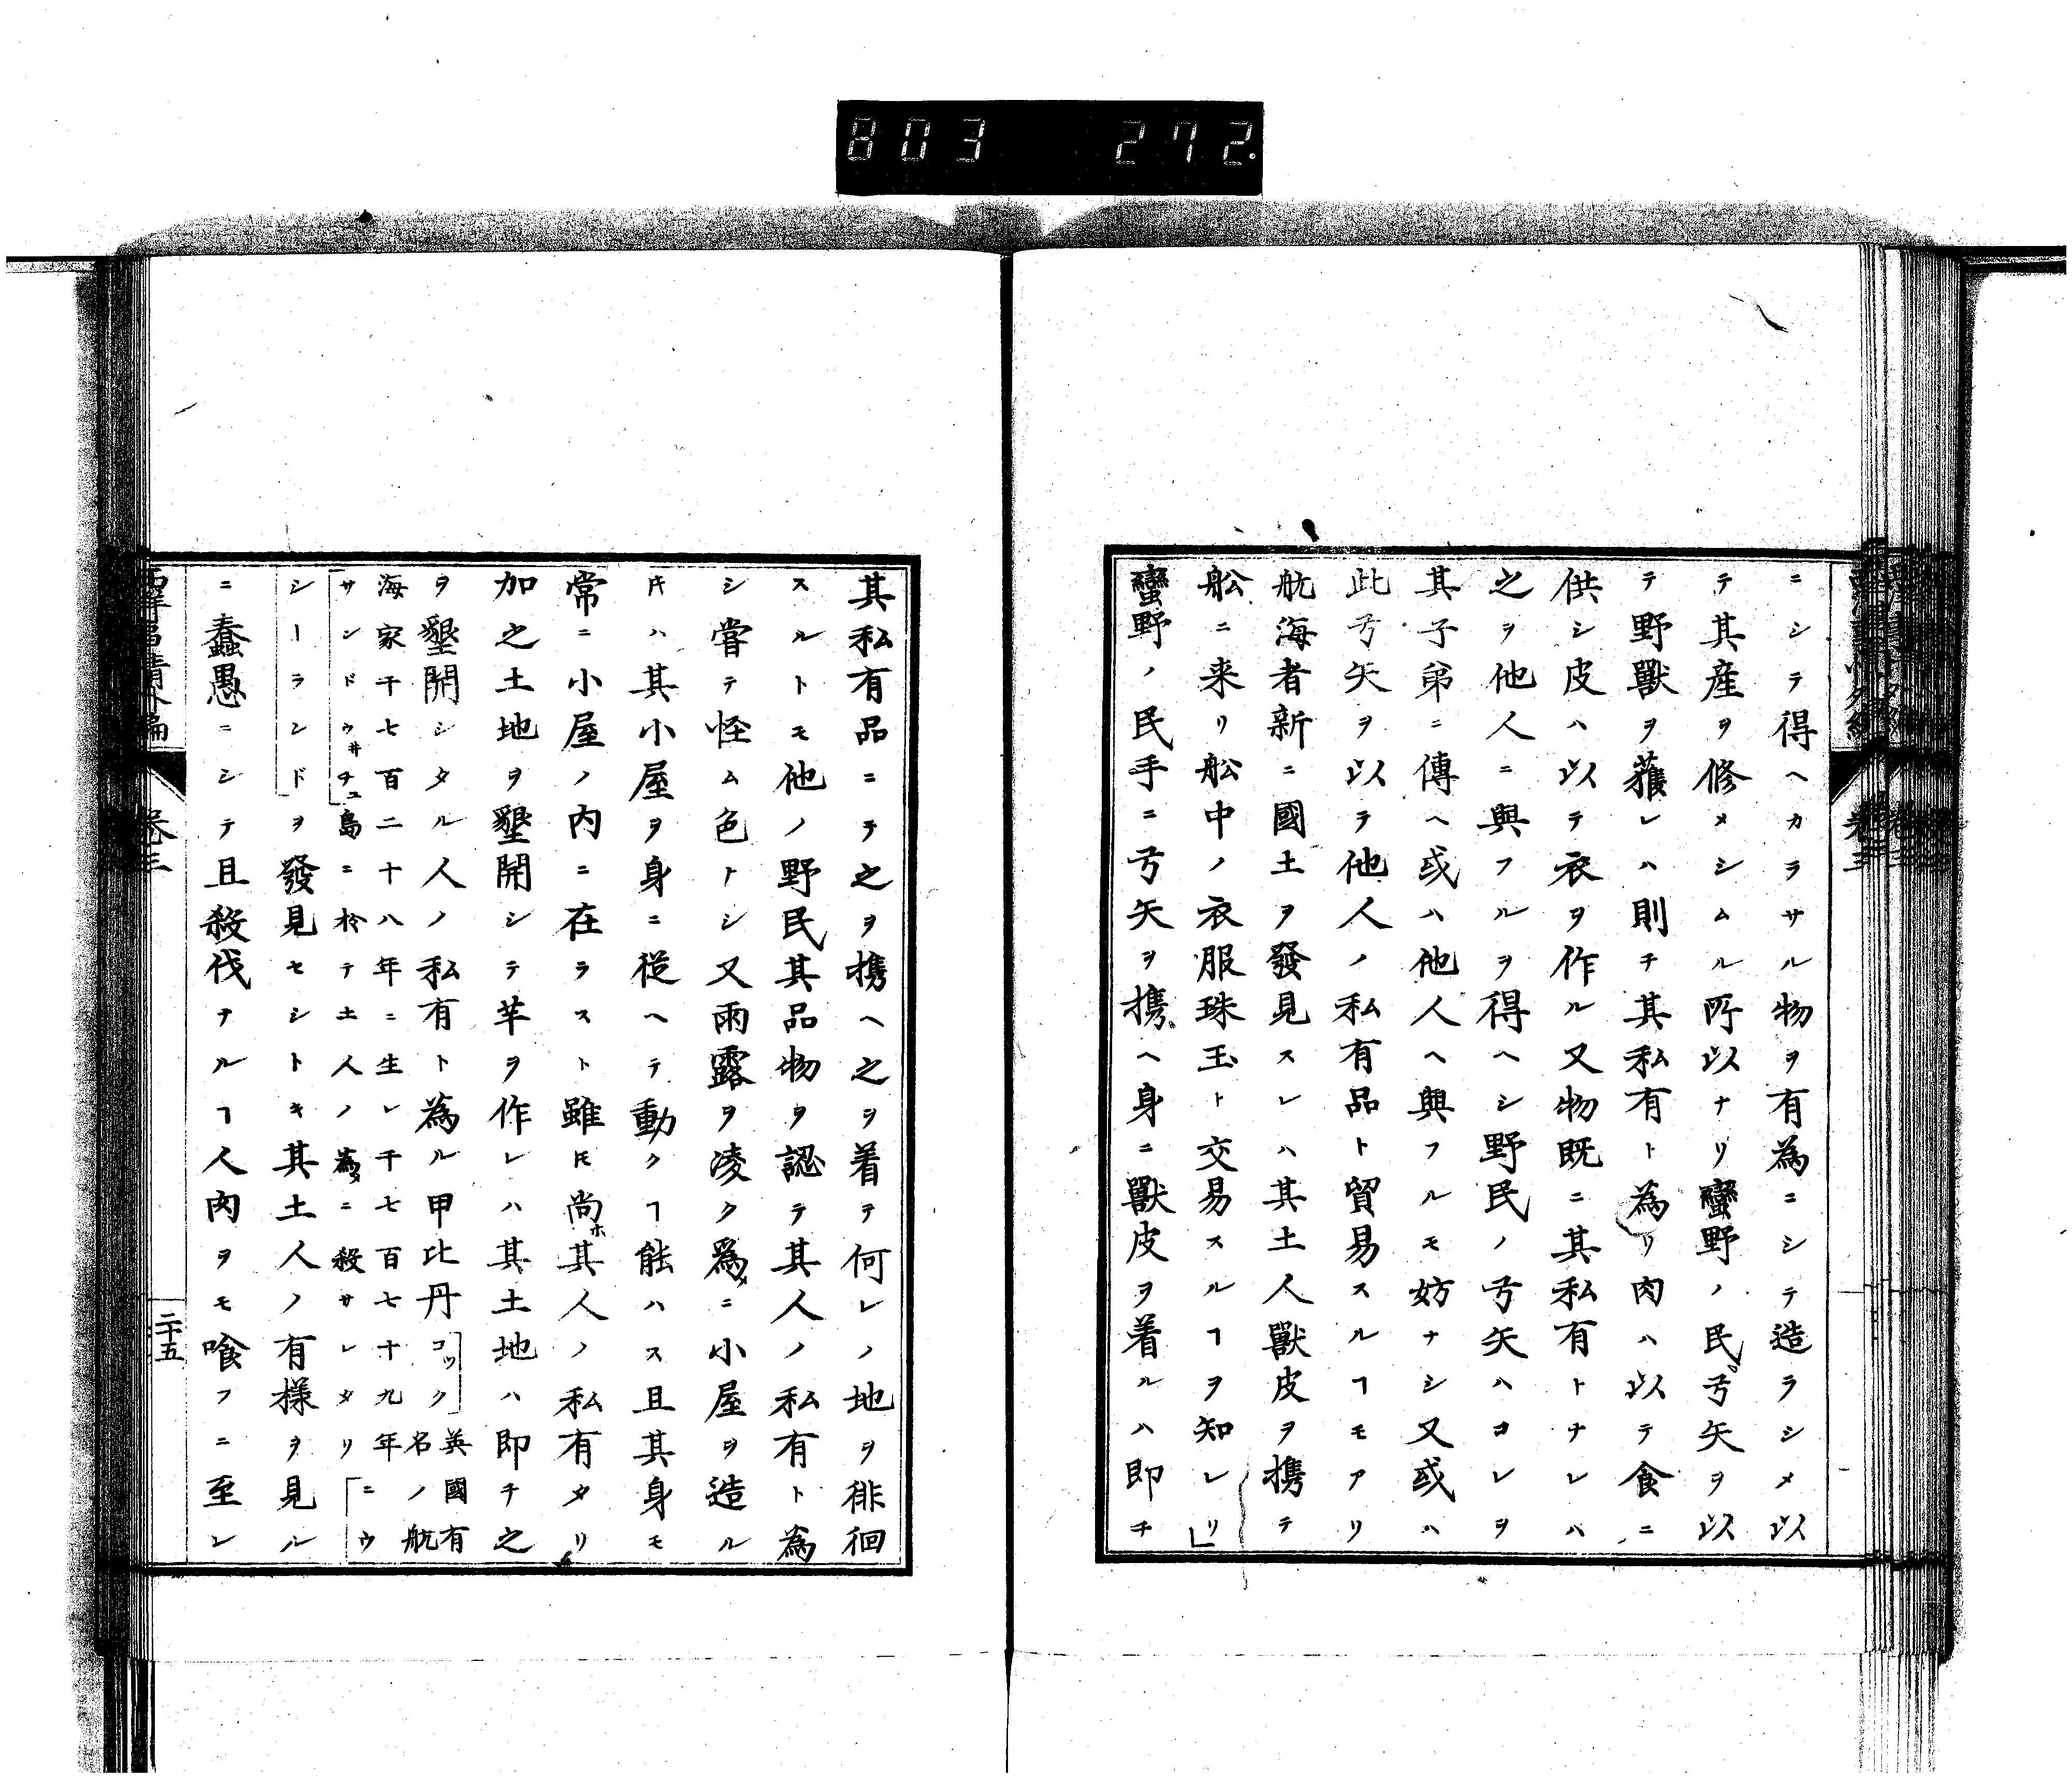 803 272.
ニシテ得ヘカラサル物ヲ有為ニシテ造ラシメ以
テ其産ヲ修メシムル所以ナリ蠻野ノ民弓矢ヲ以
テ野獸ヲ獲レハ則チ其私有ト為リ肉ハ以テ食ニ
供シ皮ハ以テ衣ヲ作ル又物既ニ其私有トナレハ
之ヲ他人ニ與フルヲ得ヘシ野民ノ弓矢ハコレヲ
其子弟ニ傳ヘ或ハ他人ヘ與フルモ妨ナシ又或ハ
此弓矢ヲ以テ他人ノ私有品ト貿易スルヿモアリ
航海者新ニ國土ヲ發見スレハ其土人獸皮ヲ携テ
舩ニ来リ舩中ノ衣服珠玉ト交易スルヿヲ知レリ」
蠻野ノ民手ニ弓矢ヲ携ヘ身ニ獸皮ヲ着ルハ即チ
其私有品ニテ之ヲ携ヘ之ヲ着テ何レノ地ヲ徘徊
スルトモ他ノ野民其品物ヲ認テ其人ノ私有ト為
シ嘗テ怪ム色トシ又雨露ヲ凌ク為メニ小屋ヲ造ル
片ハ其小屋ヲ身ニ從ヘテ動クヿ能ハス且其身モ
常ニ小屋ノ内ニ在ラスト雖𪜈尚ホ其人ノ私有タリ
加之土地ヲ墾開シテ芋ヲ作レハ其土地ハ即チ之
ヲ墾開シタル人ノ私有ト為ル甲比丹「コック」英國有名ノ航
海家千七百二十八年ニ生レ千七百七十九年「ニウ
サンドウ井チュ」島ニ於テ土人ノ為メニ殺サレタリ
シーランド」ヲ發見セシトキ其土人ノ有様ヲ見ル
ニ蠢愚ニシテ且殺伐ナルヿ人肉ヲモ喰フニ至レ
西洋事情外編
卷三
二十五